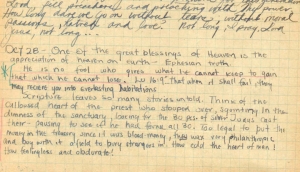 Lord, full
How long dare I go on without
hatred and love. Not long, I pray, Lord
Jesus, not long...
Oct 28 - One of the great blessings of Heaven is the
appreciation of heaven on earth - Ephesian truth.
He is no fool who gives what he cannot keep to gain
that which he cannot lose. Lu 16:9 "That when it shall fail, they
may receive you into everlasting habitations"
Scripture leaves so many stories untold. Think of the
calloused heart of the priest who stooped over, squinting in the
dimness of the sanctuary, looking for the 30 pcs of silver Judas cast
there - pausing to see if he had found all 30. Too legal to put the
money in the treasury since it was blood-money, they were very philanthropic
and buy with it a field to bury strangers in. How cold the heart of men!
How feelingless and obdurate!